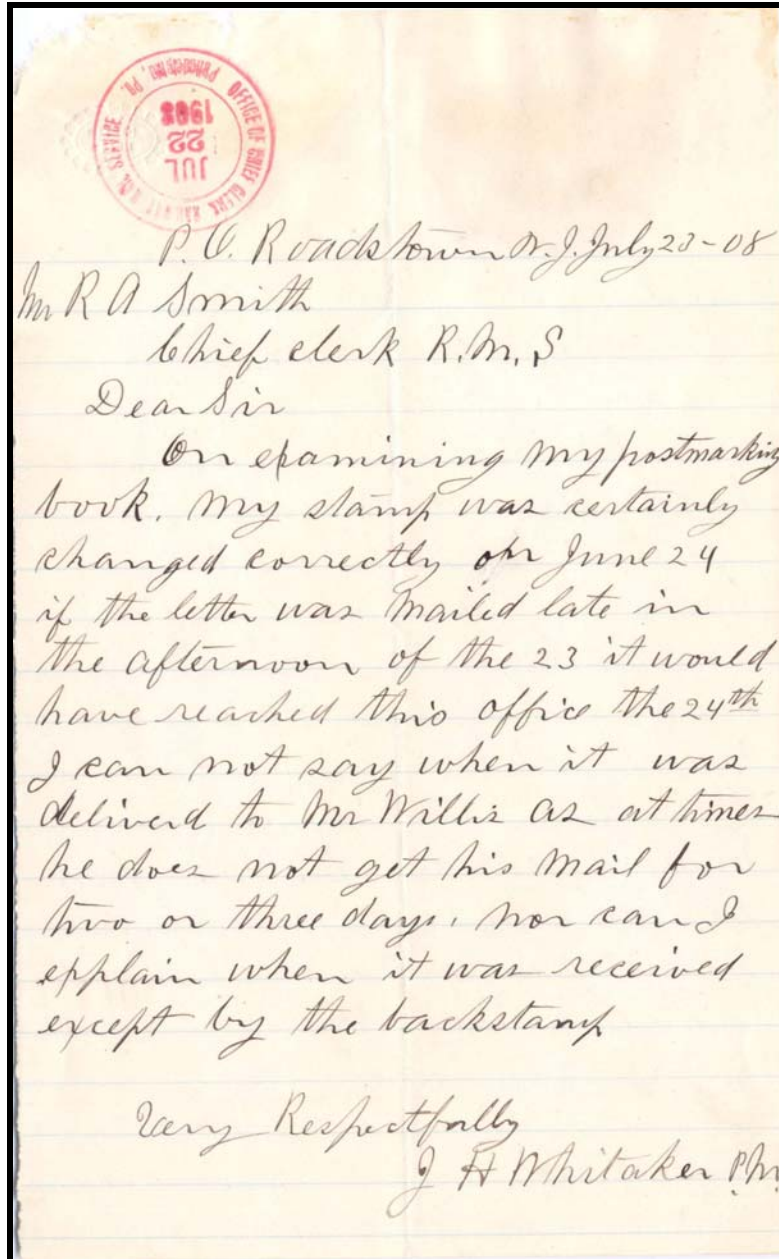 OFFICE OF CHIEF CLERK RAILWAY MAIL SERVICE
PA.
JUL
22
1908
P. O. Roadstown N. J. July 23-08
Mr R A Smith
Chief clerk R. M. S
Dear Sir
On examining my postmarking
book. my stamp was certainly
changed correctly on June 24
if the letter was mailed late in
the afternoon of the 23 it would
have reached this office the 24th
I can not say when it was
deliverd to Mr Willis as at times
he does not get his mail for
two or three days. nor can I
explain when it was received
except by the backstamp
Very Respectfully
J H Whitaker P.M.